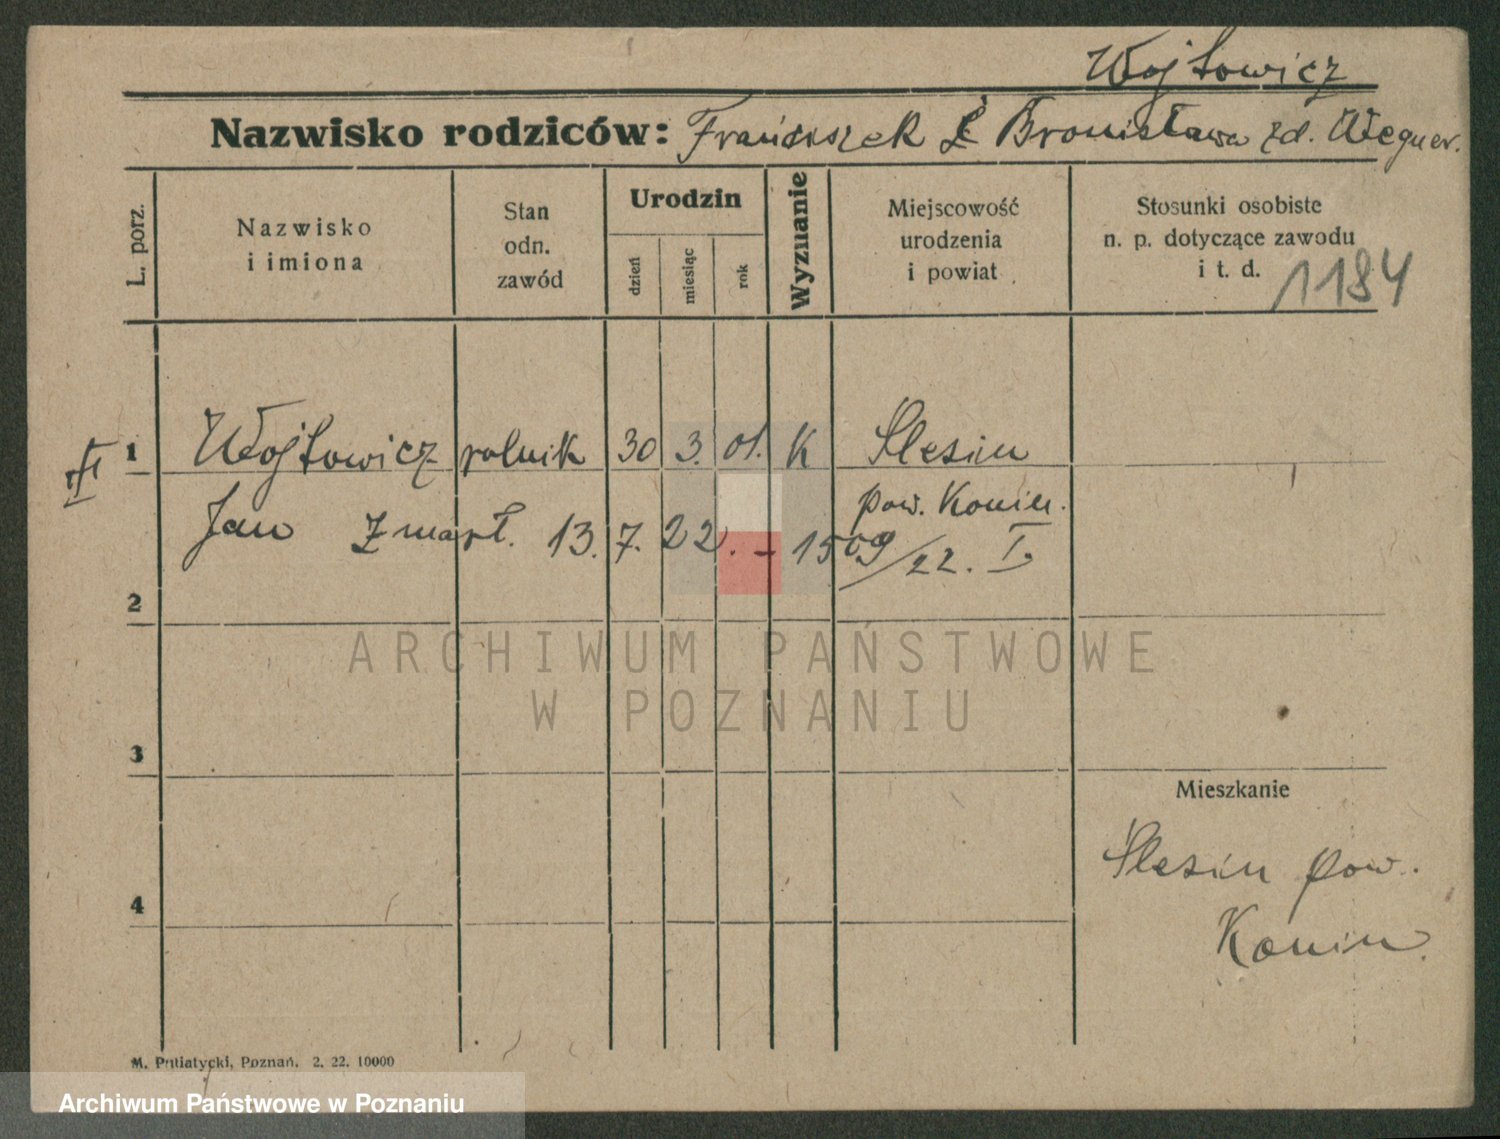 Wojtowicz
Nazwisko rodziców: Franciszek & Bronisława zd. Wegner.
L. porz.
Nazwisko
i imiona
Stan
odn.
zawód
Urodzin
dzień
miesiąc
rok
Wyznanie
Miejscowość
urodzenia
i powiat
Stosunki osobiste
n. p. dotyczące zawodu
i t. d.
1184
1 Wojtowicz rolnik 30 3. 01. K Slesin
pow. Konin.
Jan Zmarł. 13. 7. 22. - 1509/22. I.
2
3
4
ARCHIWUM PAŃSTWOWE
W POZNANIU
Mieszkanie
Slesin pow.
Konin.
M. Putiatycki, Poznań. 2. 22. 10000
Archiwum Państwowe w Poznaniu